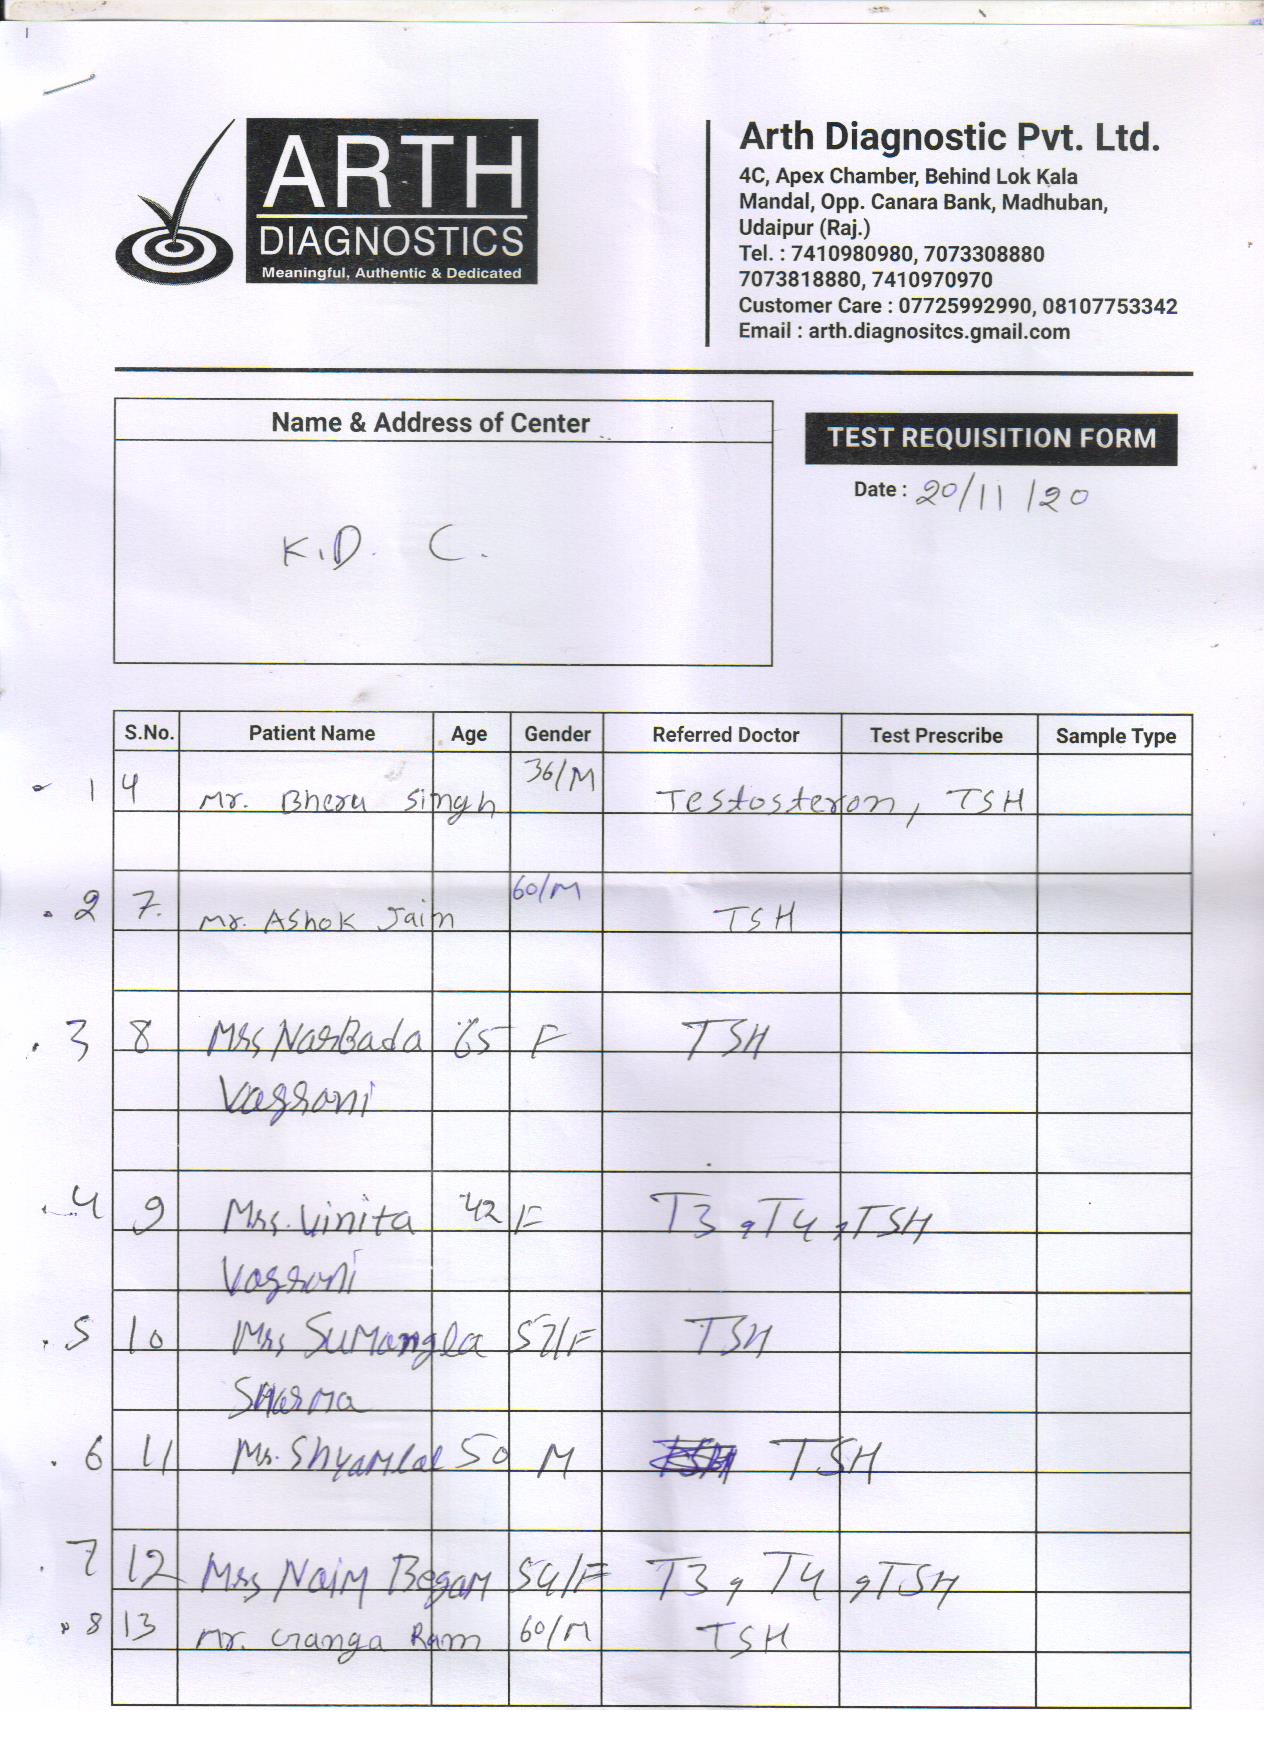 ARTH
DIAGNOSTICS
Meaningful, Authentic & Dedicated
Arth Diagnostic Pvt. Ltd.
4C, Apex Chamber, Behind Lok Kala
Mandal, Opp. Canara Bank, Madhuban,
Udaipur (Raj.)
Tel. : 7410980980, 7073308880
7073818880, 7410970970
Customer Care : 07725992990, 08107753342
Email : arth.diagnositcs.gmail.com
Name & Address of Center
K.D. C.
TEST REQUISITION FORM
Date : 20/11/20
S.No. Patient Name Age Gender Referred Doctor Test Prescribe Sample Type
1 4 Mr. Bheru Singh 36/M Testosteron, TSH
2 7. Mr. Ashok Jain 60/M TSH
3 8 Mrs NarBada 65 F TSH
4 9 Mrs. Vinita 42 F T3, T4, TSH
5 10 Mrs SuMangla 57/F TSH
SHarMa
6 11 Mr. ShyaMlal 50 M TSH
7 12 Mrs NaiM BegaM 54/F T3, T4, TSH
8 13 Mr. Ganga Ram 60/M TSH